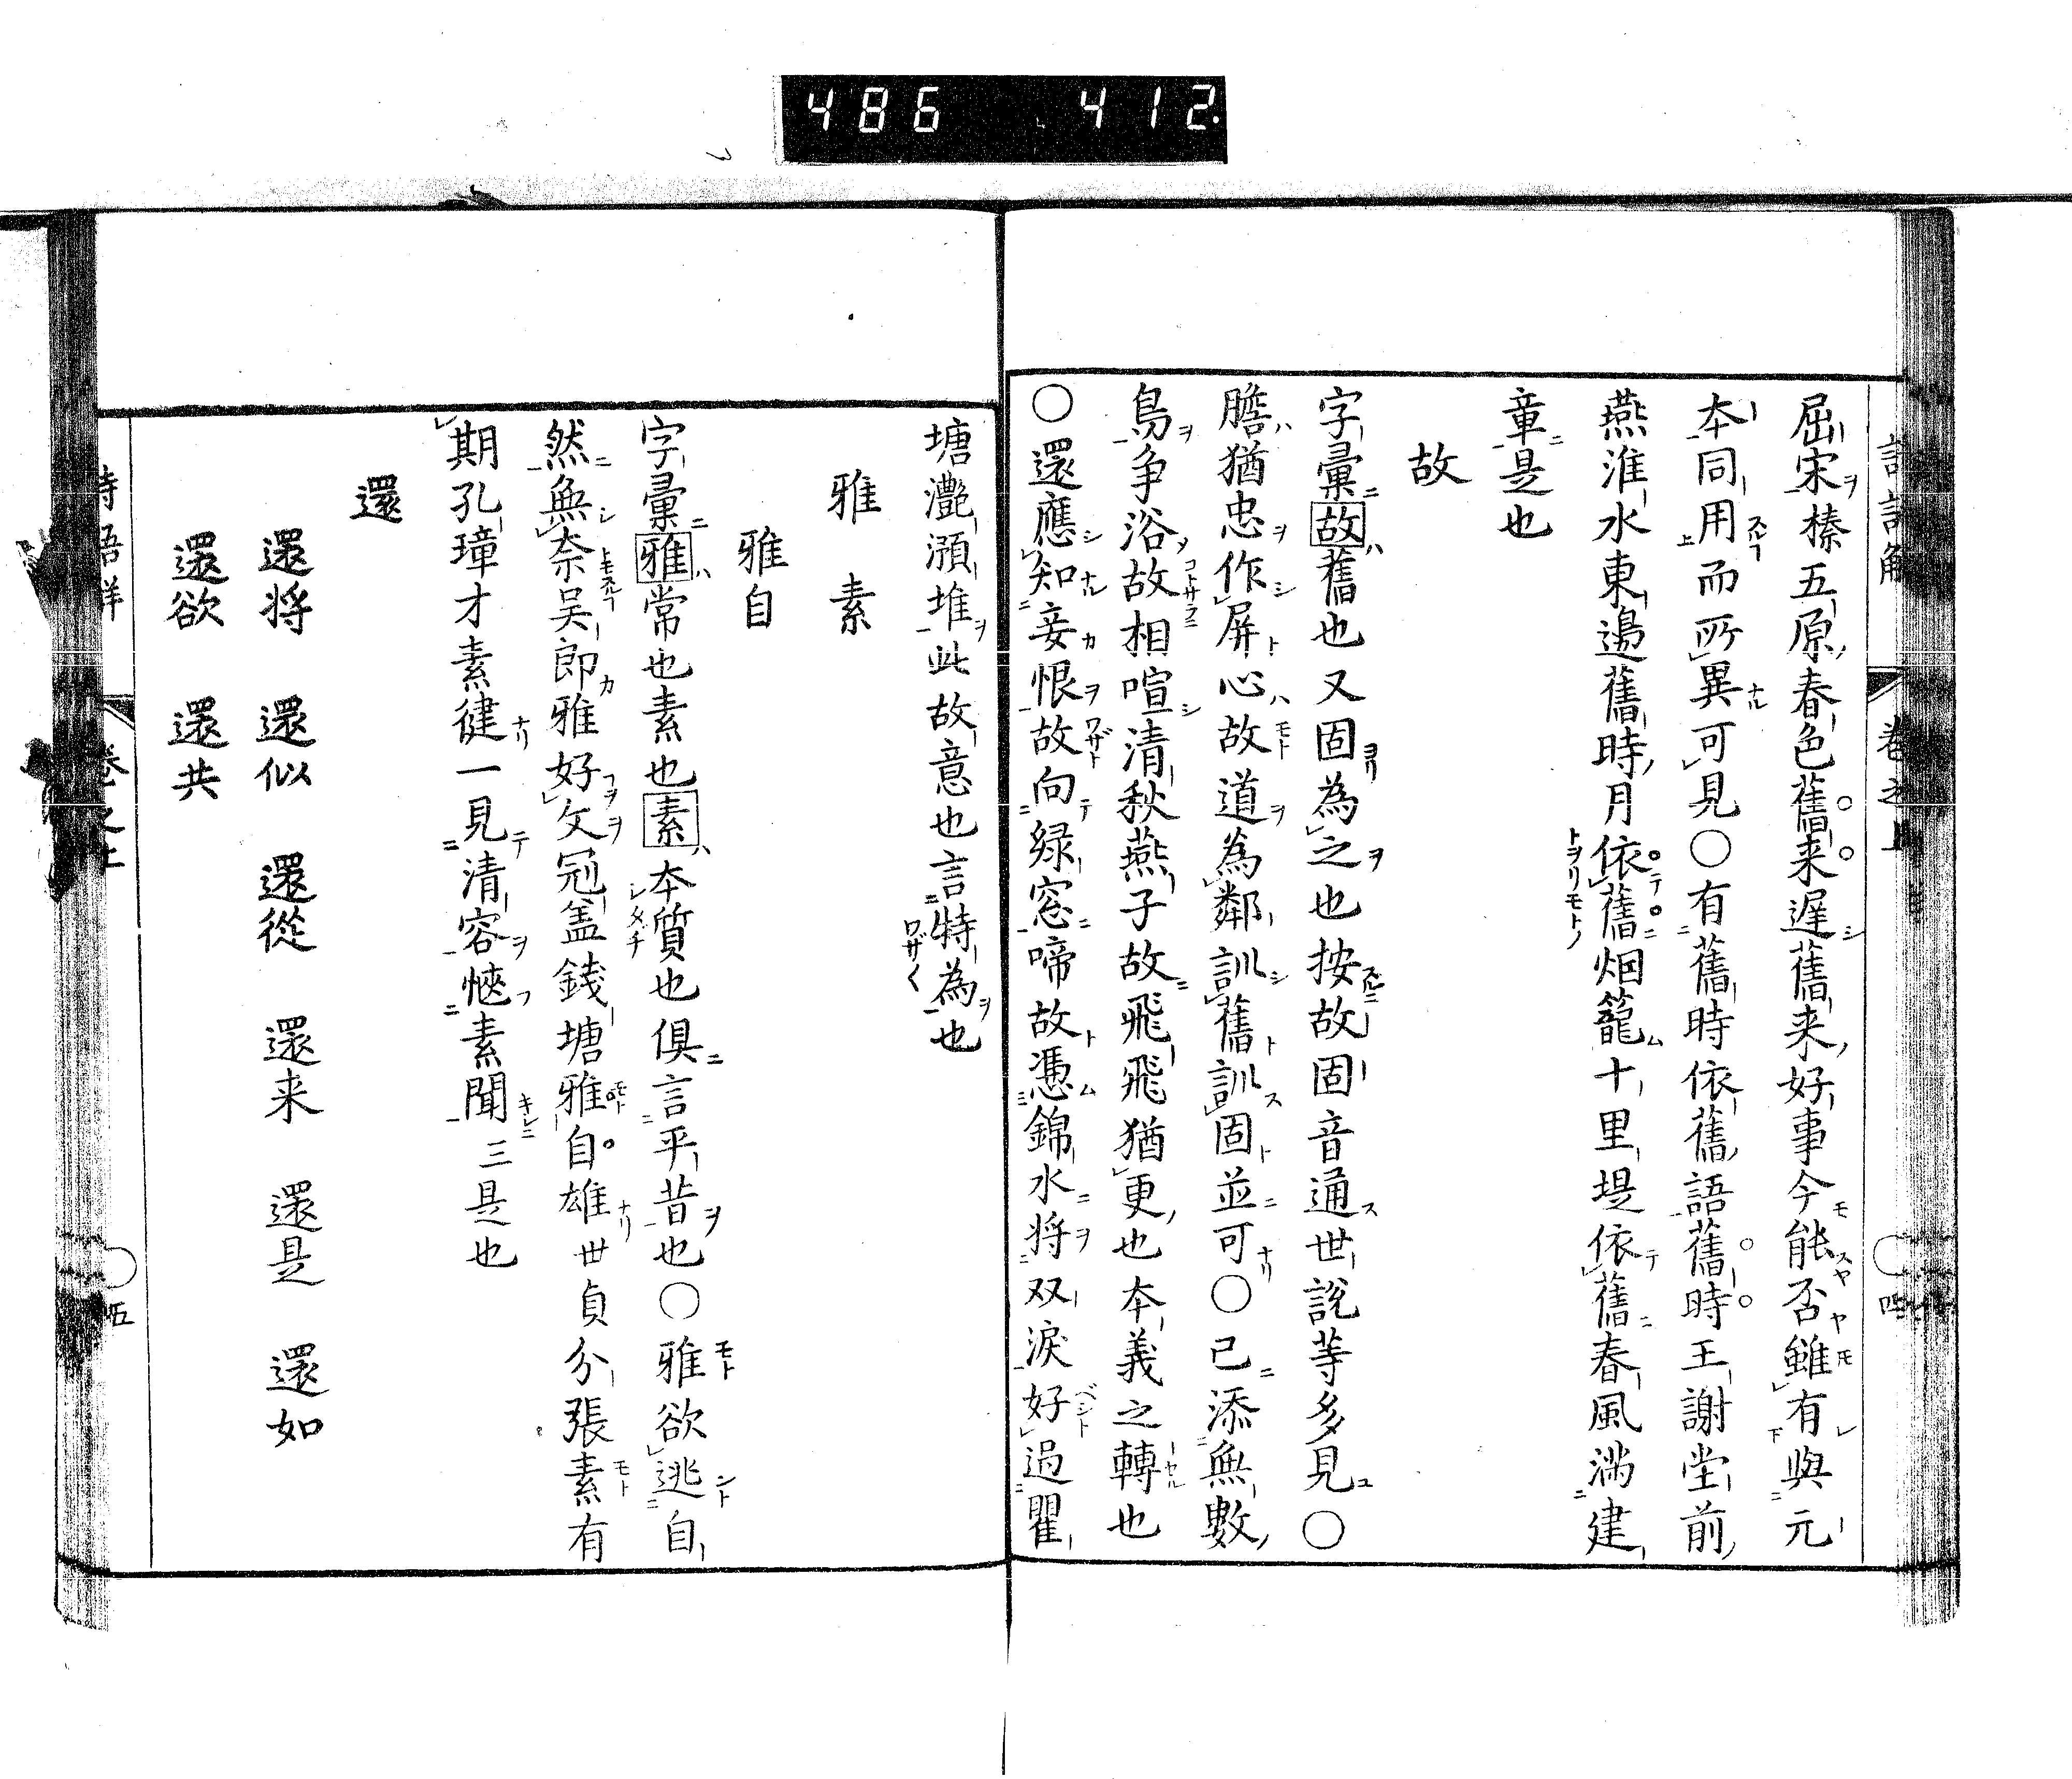 486 412
屈宋榛五原春色舊来遅舊来好事今能否雖有與元
本同用而所異可見〇有舊時依舊語舊時王謝堂前
燕淮水東邉舊時月依舊烟籠十里堤依舊春風満建
章是也
故
字彙故舊也又固為之也按故固音通世説等多見〇
膽猶忠作屏心故道為鄰訓舊訓固並可〇已添無數
鳥争浴故相喧清秋燕子故飛飛猶更也本義之轉也
〇還應知妾恨故向緑窓啼故憑錦水将双淚好過瞿
塘灔澦堆此故意也言特為也
雅 素
雅自
字彙雅常也素也素本質也俱言平昔也〇雅欲逃自
然無奈吴郎雅好文冠盖錢塘雅自雄世貞分張素有
期孔璋才素健一見清容愜素聞三是也
還
還将 還似 還從 還来 還是 還如
還欲 還共
卷之上